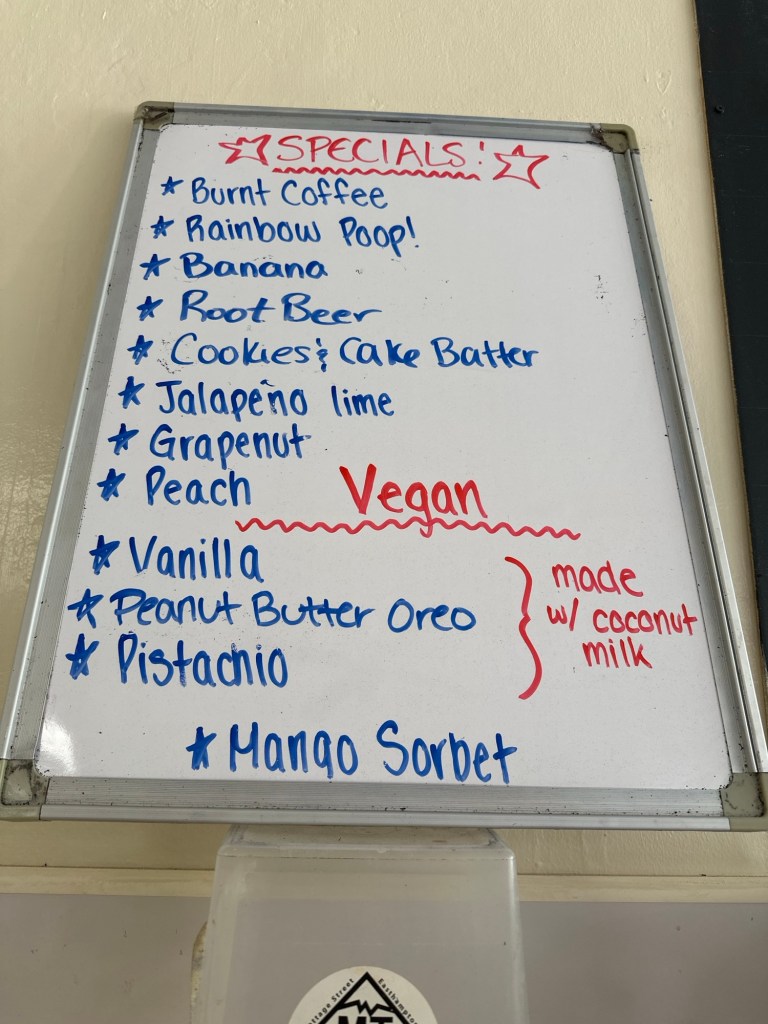 SPECIALS!
Burnt Coffee
Rainbow Poop!
Banana
Root Beer
Cookies & Cake Batter
Jalapeño lime
Grapenut
Peach
Vegan
Vanilla
Peanut Butter Oreo
Pistachio
made
w/ coconut
milk
Mango Sorbet
ttage Street
Easthampto
MT